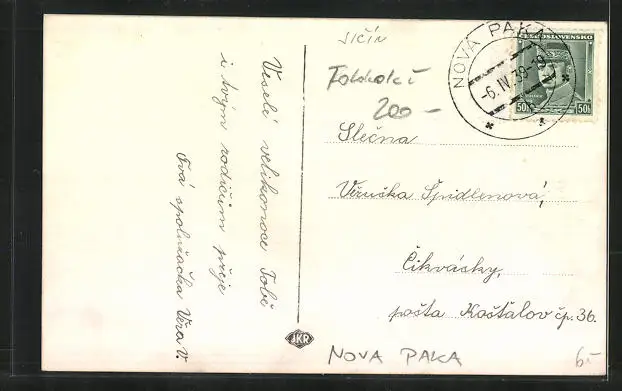 JIČÍN
200 –
Slečna
Věruška Špidlenová,
Čikvásky,
pošta Košťálov čp. 36.
Veselé velikonoce Tobě
i tvým rodičům přeje
Tvá spolužačka Věra V.
NOVÁ PAKA
-6.IV.39-19
ČESKOSLOVENSKO
50h 50h
JKR
NOVA PAKA
6-